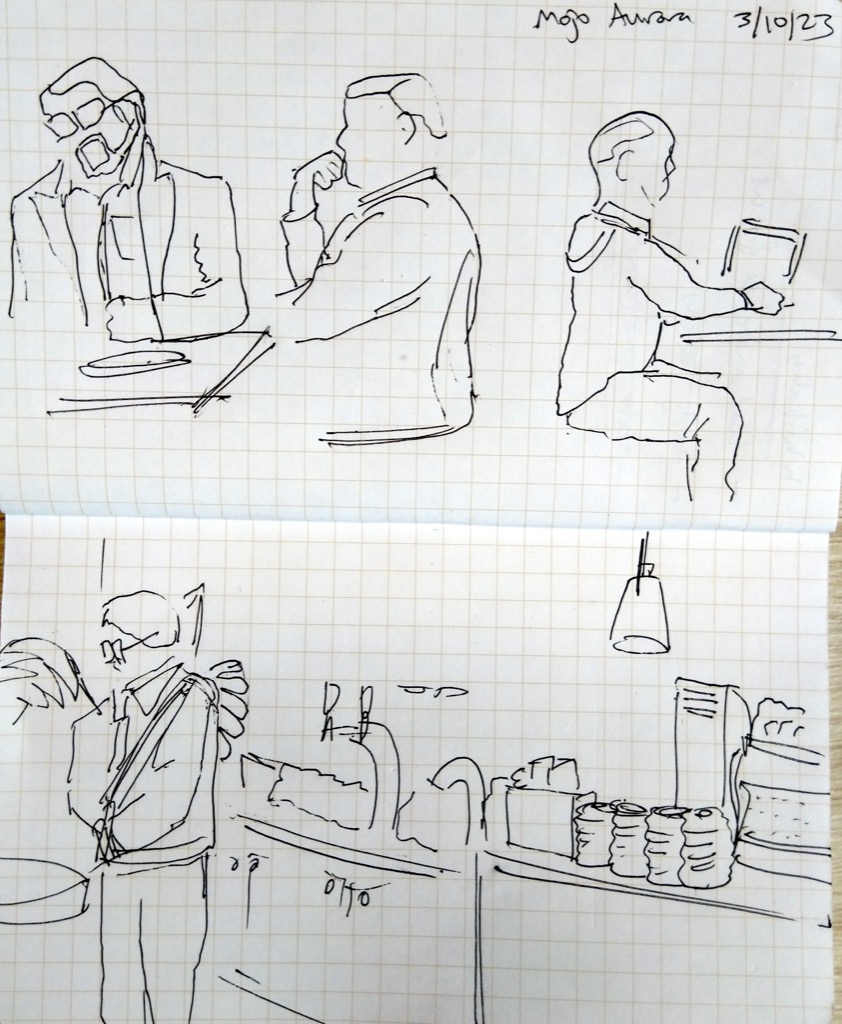 Mojo Aurora 3/10/23